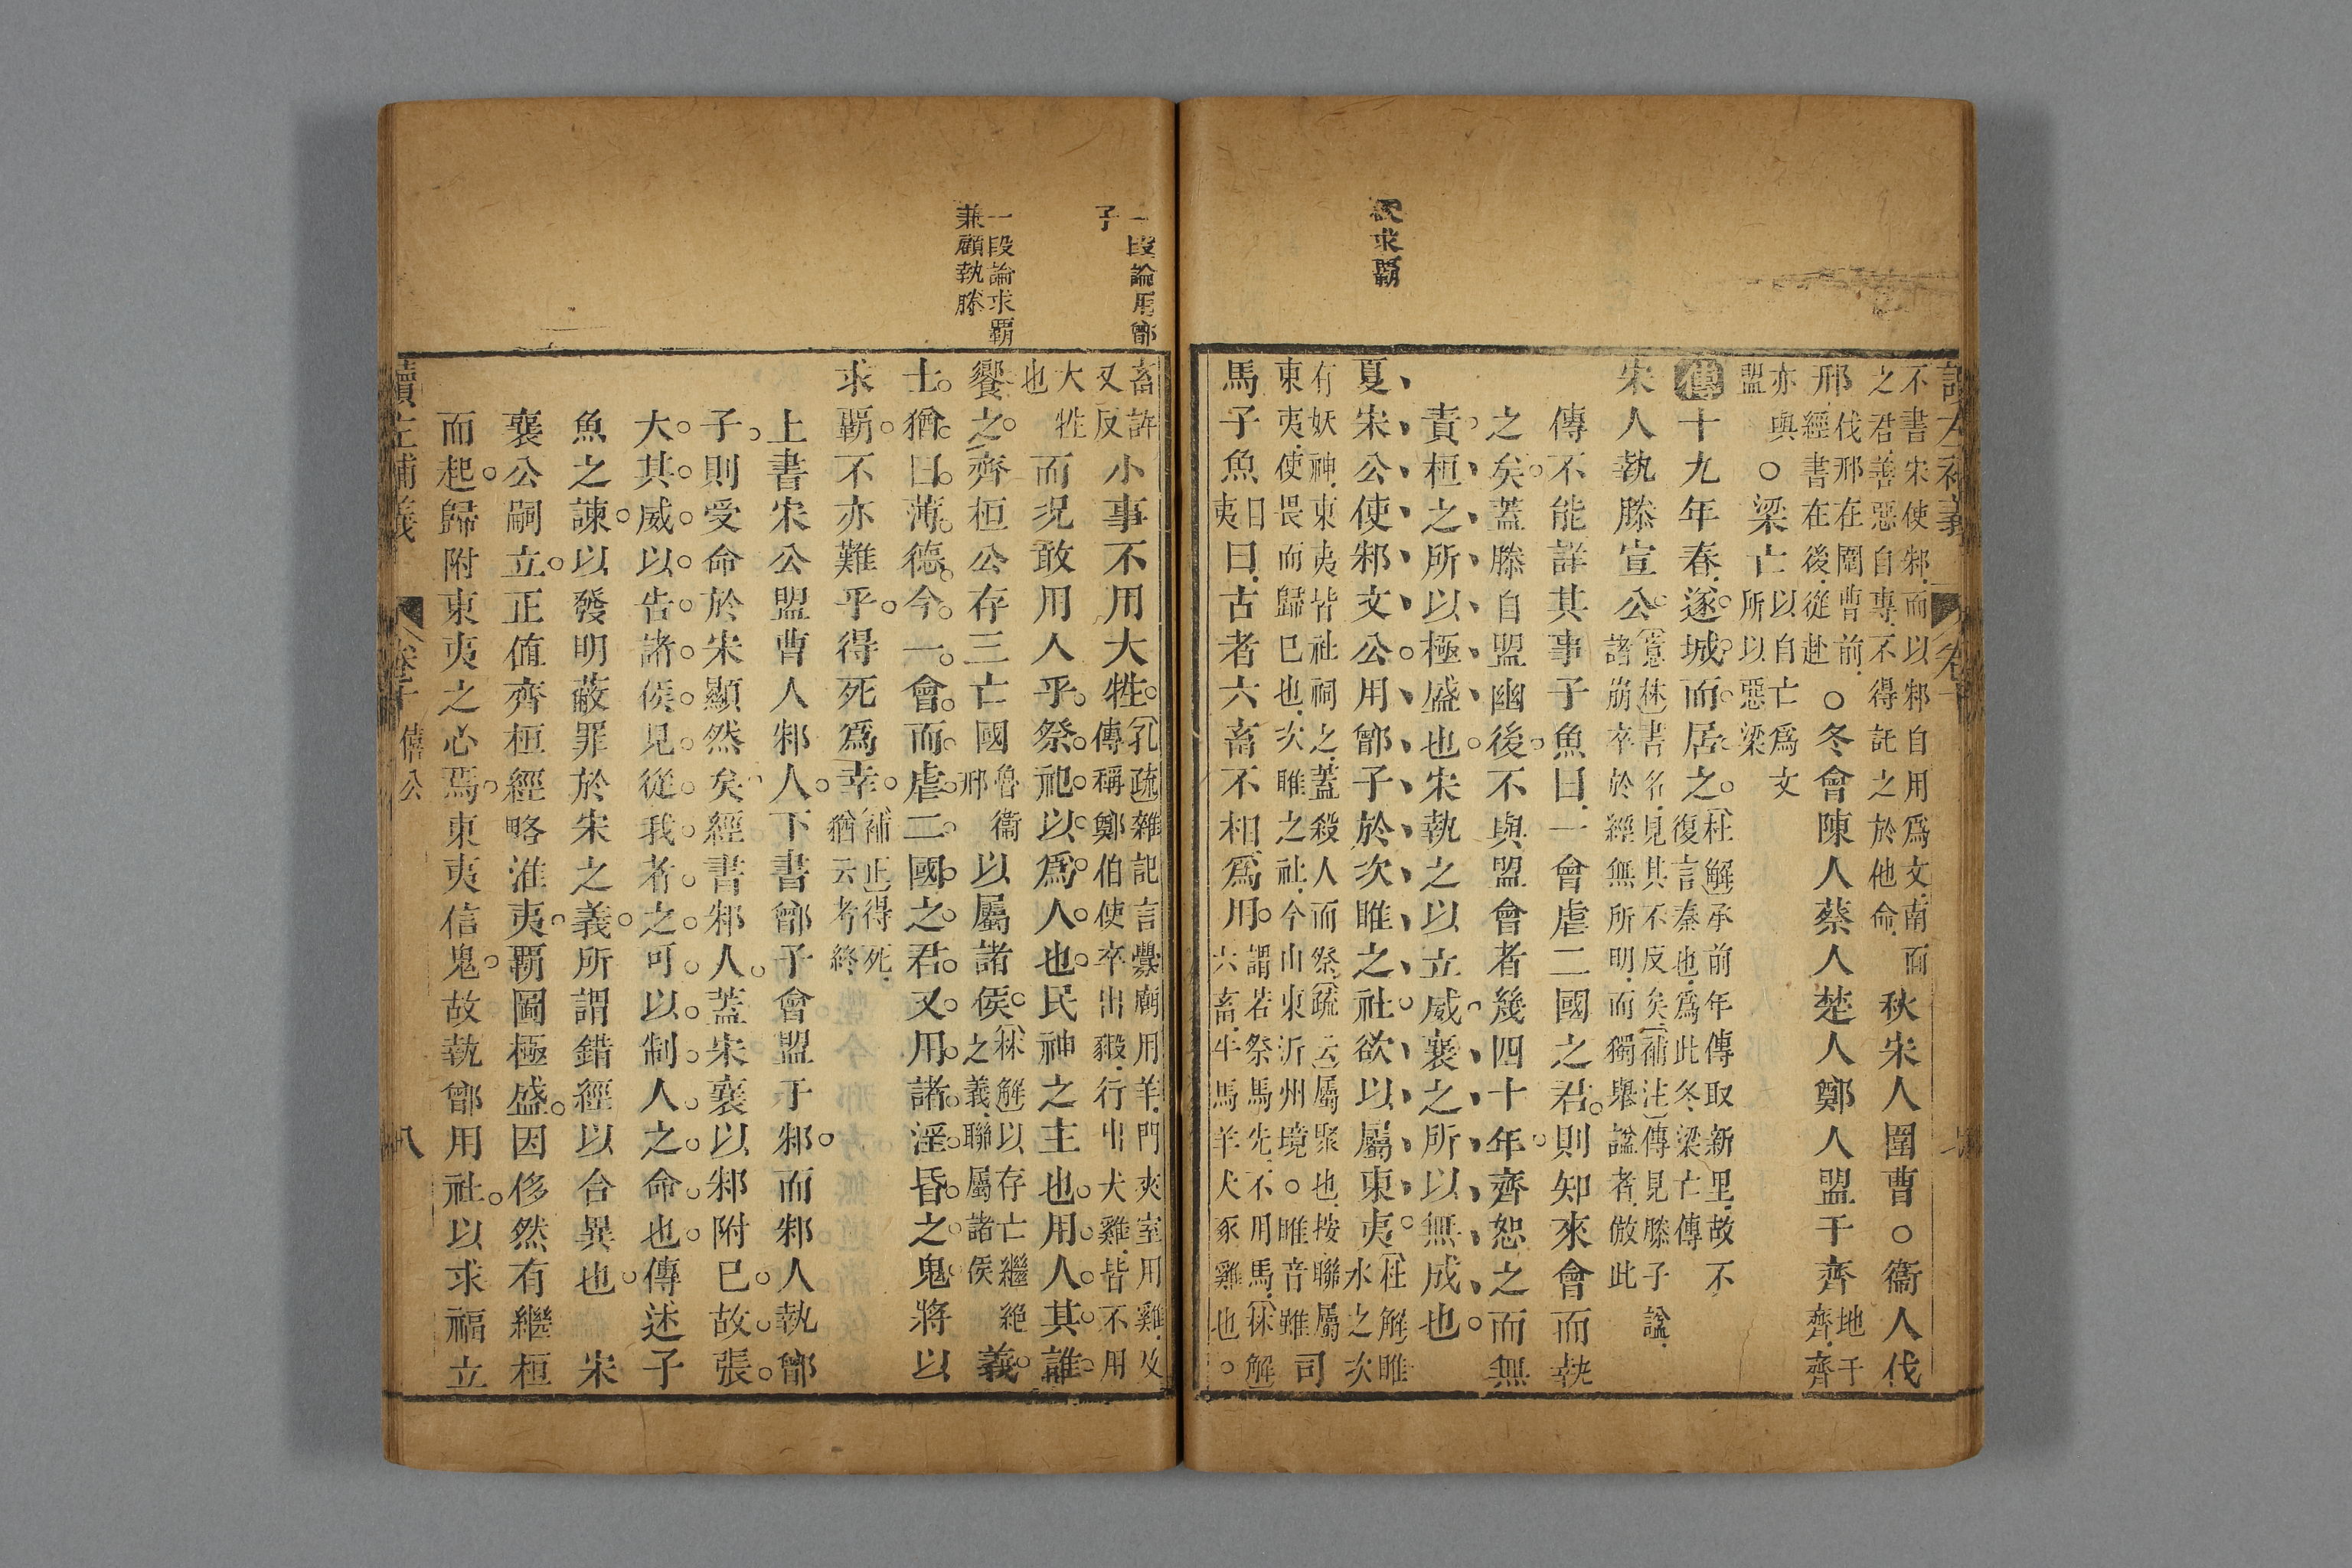 次求覇
不書宋使邾而以邾自用爲文南面
之君善惡自專不得託之於他命
秋宋人圍曹○衞人伐
邢
伐邢在圍曹前
經書在後從赴
○冬會陳人蔡人楚人鄭人盟于齊
地于
齊齊
亦與
盟
○梁亡
以自亡爲文
所以惡梁
傳十九年春遂城而居之
杜解承前年傳取新里故不
復言秦也爲此冬梁亡傳
宋人執滕宣公
林書名見其不反矣補注傳見滕子諡
諸崩卒於經無所明而獨舉諡者倣此
傳不能詳其事子魚曰一會虐二國之君則知來會而執
之矣蓋滕自盟幽後不與盟會者幾四十年齊恕之而無
責桓之所以極盛也宋執之以立威襄之所以無成也
夏宋公使邾文公用鄫子於次睢之社欲以屬東夷
杜解睢
水之次
有妖神東夷皆社祠之蓋殺人而祭疏云屬聚也按聯屬
東夷使畏而歸巳也次睢之社今山東沂州境○睢音雖
司
馬子魚
曰
夷
曰古者六畜不相爲用
謂若祭馬先不用馬林解
六畜牛馬羊犬豕雞也○
一段論用鄫
子
畜許
又反
小事不用大牲
孔疏雜記言釁廟用羊門夾室用雞及
傳稱鄭伯使卒出豭行出犬雞皆不用
大牲
也
而況敢用人乎祭祀以爲人也民神之主也用人其誰
饗之齊桓公存三亡國
魯衞
邢
以屬諸侯
林解以存亡繼絶
之義聯屬諸侯
義
一段論求覇
兼顧執滕
士猶曰薄德今一會而虐二國之君又用諸淫昏之鬼將以
求覇不亦難乎得死爲幸
補正得死
猶云考終
上書宋公盟曹人邾人下書鄫子會盟于邾而邾人執鄫
子則受命於宋顯然矣經書邾人蓋宋襄以邾附巳故張
大其威以告諸侯見從我者之可以制人之命也傳述子
魚之諫以發明蔽罪於宋之義所謂錯經以合異也 宋
襄公嗣立正値齊桓經略淮夷覇圖極盛因侈然有繼桓
而起歸附東夷之心焉東夷信鬼故執鄫用社以求福立
讀左補義
卷十
僖公
八